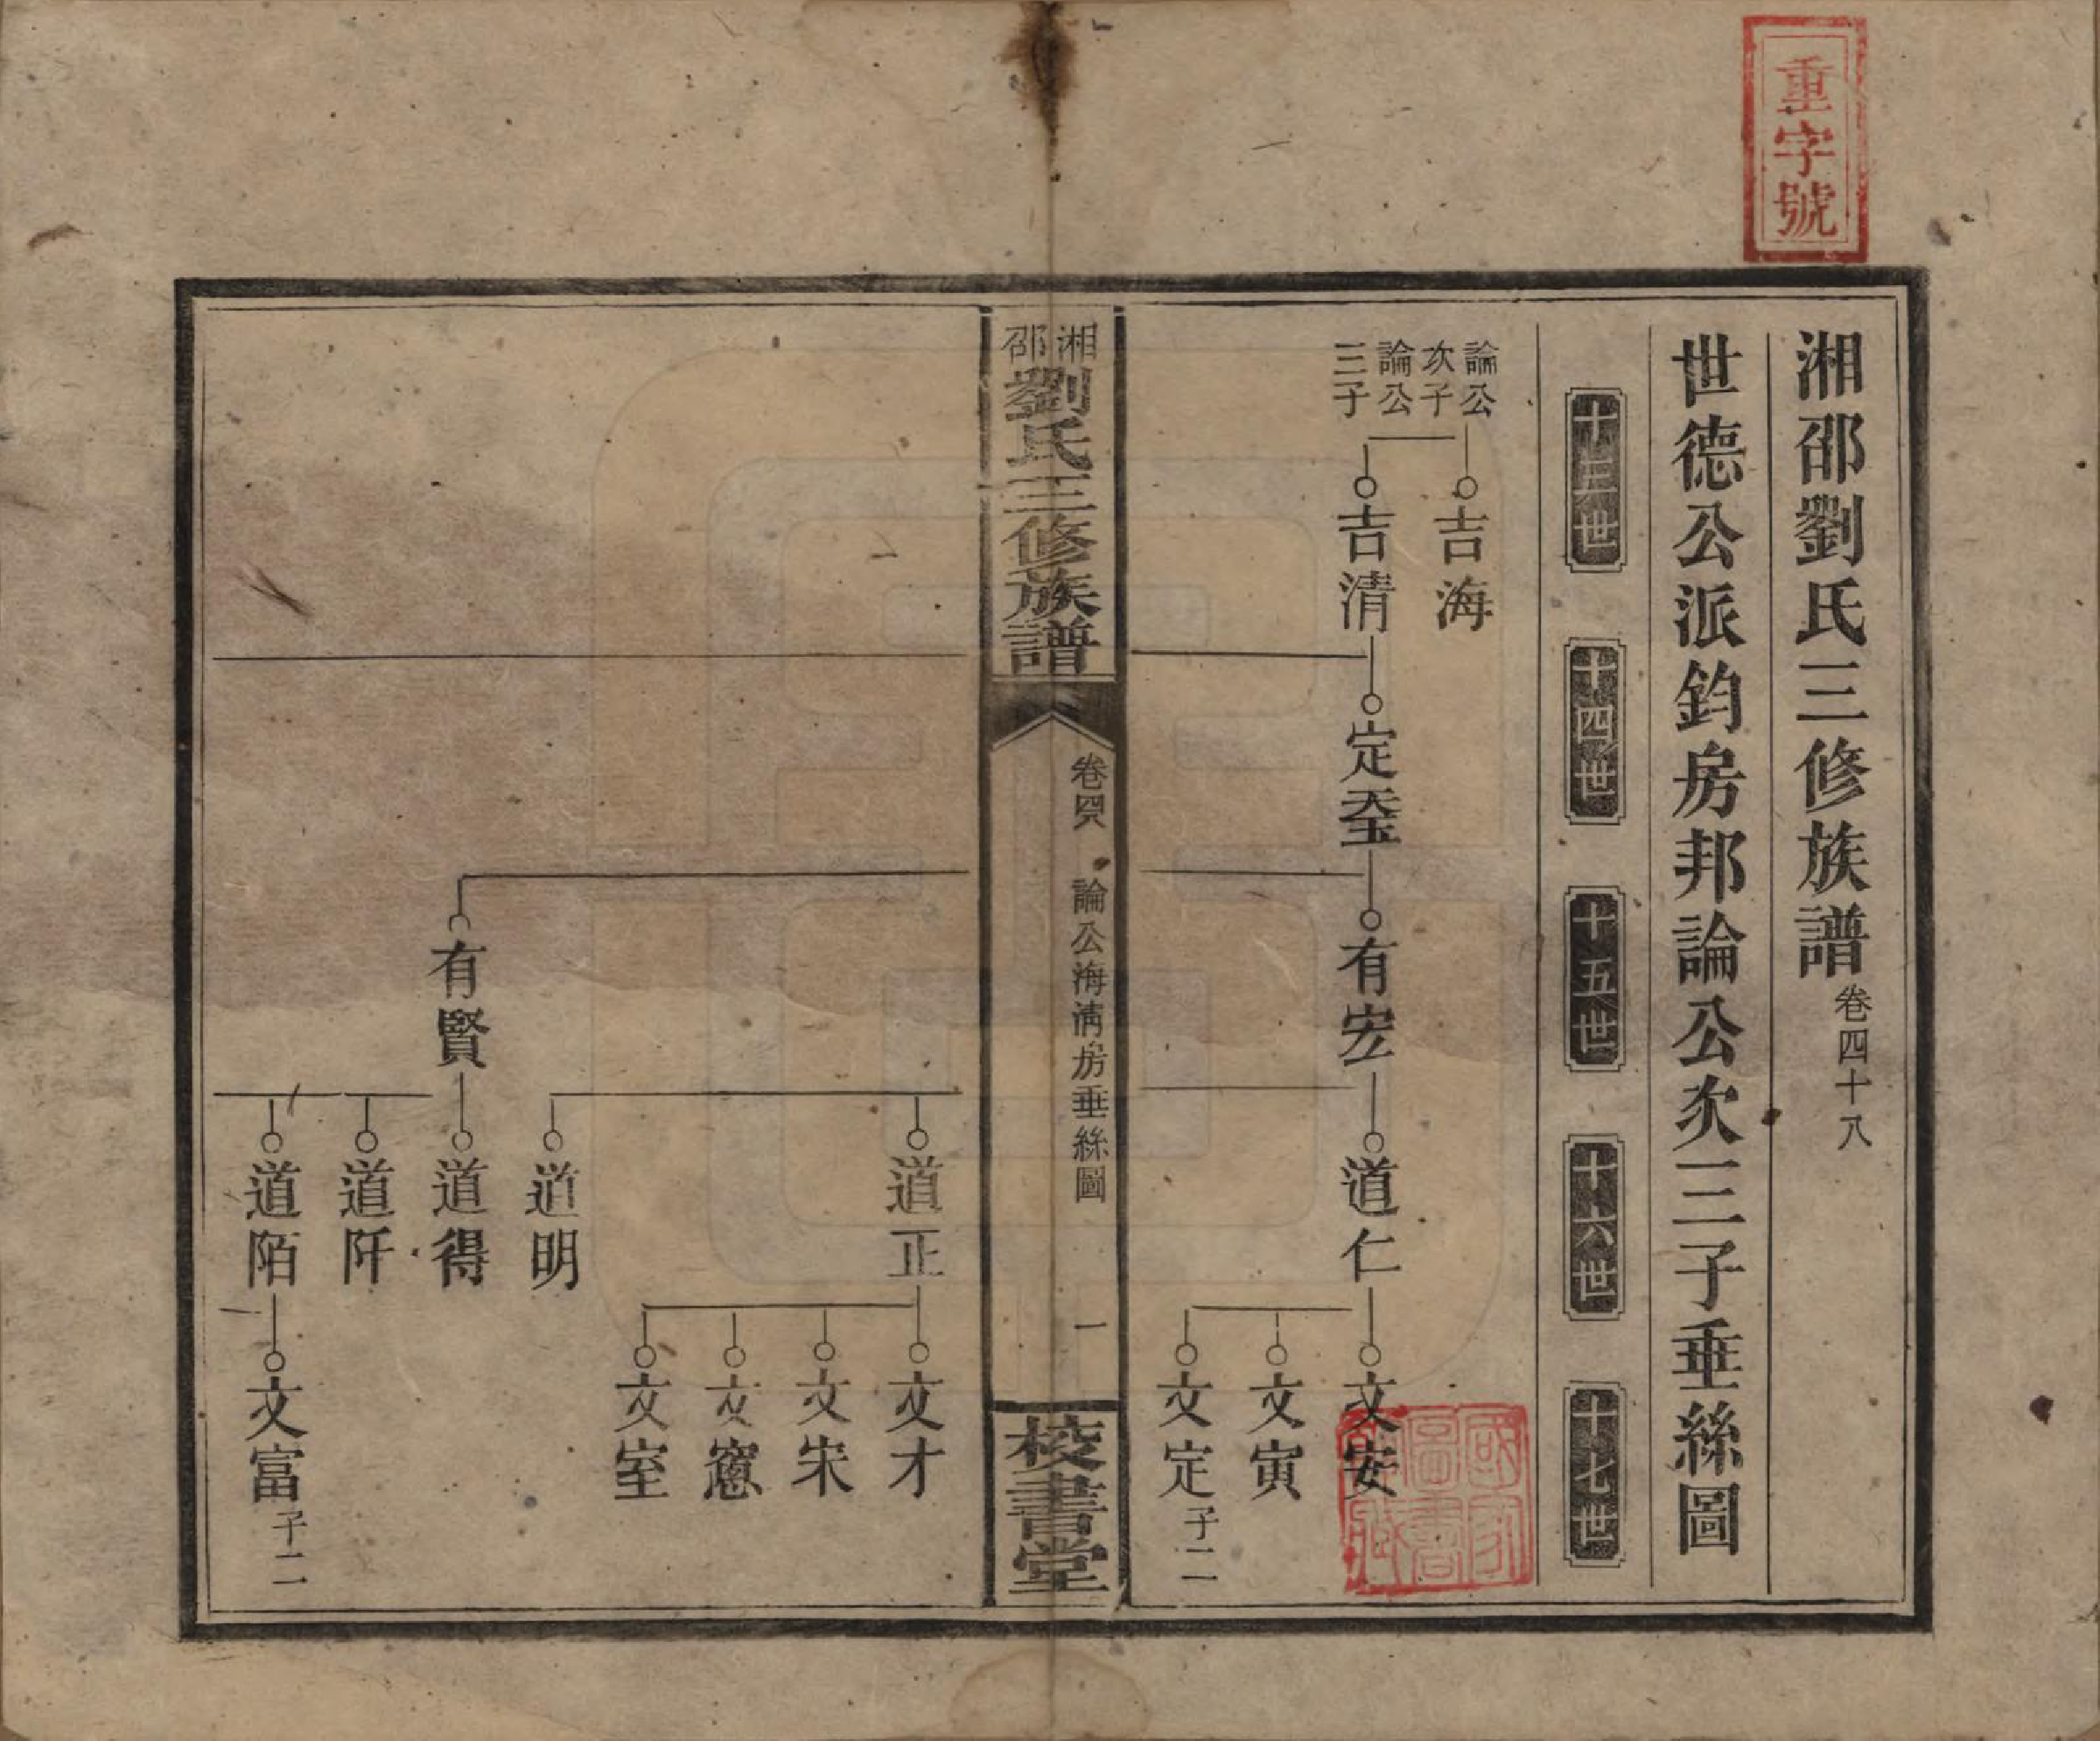 重字號
湘邵劉氏三修族譜卷四十八
世德公派鈞房邦論公次三子垂絲圖
十三世
十四世
十五世
十六世
十七世
論公
次子
吉海
論公
三子
吉清
定㻔
有宏
道仁
文安
文寅
文定 子二
湘邵劉氏三修族譜
卷四八
論公海清房垂絲圖
一
校書堂
道正
文才
文宋
文窻
文室
道明
有賢
道得
道阡
道陌
文富 子二